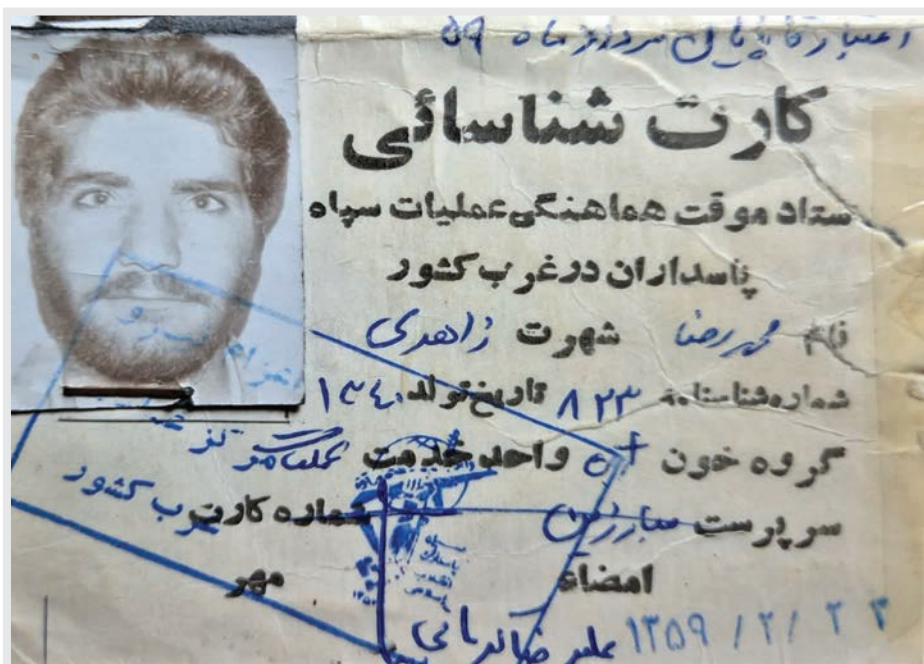 اعتبار تا پایان مرداد ماه ۵۹
کارت شناسائی
ستاد موقت هماهنگی عملیات سپاه
پاسداران در غرب کشور
نام محمدرضا شهرت زاهدی
شماره شناسنامه ۸۲۳ تاریخ تولد ۱۳۴۰
گروه خون O+ واحد خدمت
غرب کشور
سرپرست شماره کارت
امضاء مهر
۱۳۵۹/۲/۲۳